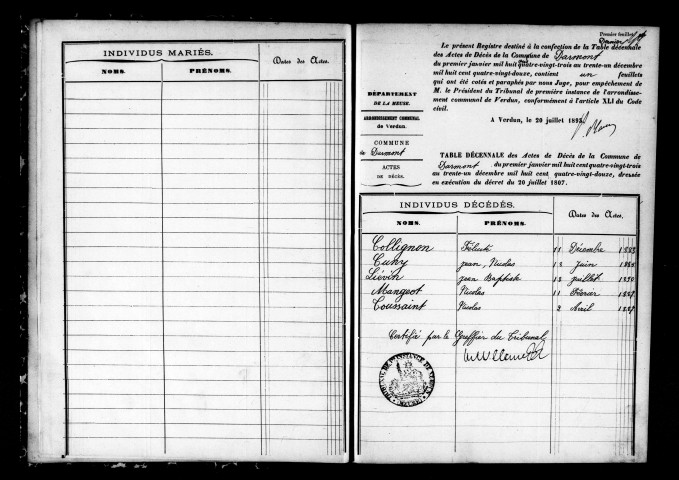 INDIVIDUS MARIÉS.
Dates des Actes.
NOMS. PRÉNOMS.
Premier feuillet
Dernier
Le présent Registre destiné à la confection de la Table décennale
des Actes de Décès de la Commune de Darmont
du premier janvier mil huit cent quatre-vingt-trois au trente-un décembre
mil huit cent quatre-vingt-douze, contient un feuillets
qui ont été cotés et paraphés par nous Juge, pour empêchement de
M. le Président du Tribunal de première instance de l'arrondisse-
ment communal de Verdun, conformément à l'article XLI du Code
civil.
A Verdun, le 20 juillet 1893.
DÉPARTEMENT
DE LA MEUSE.
ARRONDISSEMENT COMMUNAL
de Verdun.
COMMUNE
de Darmont
ACTES
DE DÉCÈS.
TABLE DÉCENNALE des Actes de Décès de la Commune de
Darmont du premier janvier mil huit cent quatre-vingt-trois
au trente-un décembre mil huit cent quatre-vingt-douze, dressée
en exécution du décret du 20 juillet 1807.
INDIVIDUS DÉCÉDÉS.
Dates des Actes.
NOMS. PRÉNOMS.
Collignon Félicité 11 Décembre
Cuny Jean, Nicolas 12 Juin
Liévin Jean Baptiste 13 Juillet
Mangeot Nicolas 11 Février
Toussaint Nicolas 2 Avril
Certifié par le Greffier du Tribunal
TRIBUNAL DE 1re INSTANCE DE VERDUN
(MEUSE)